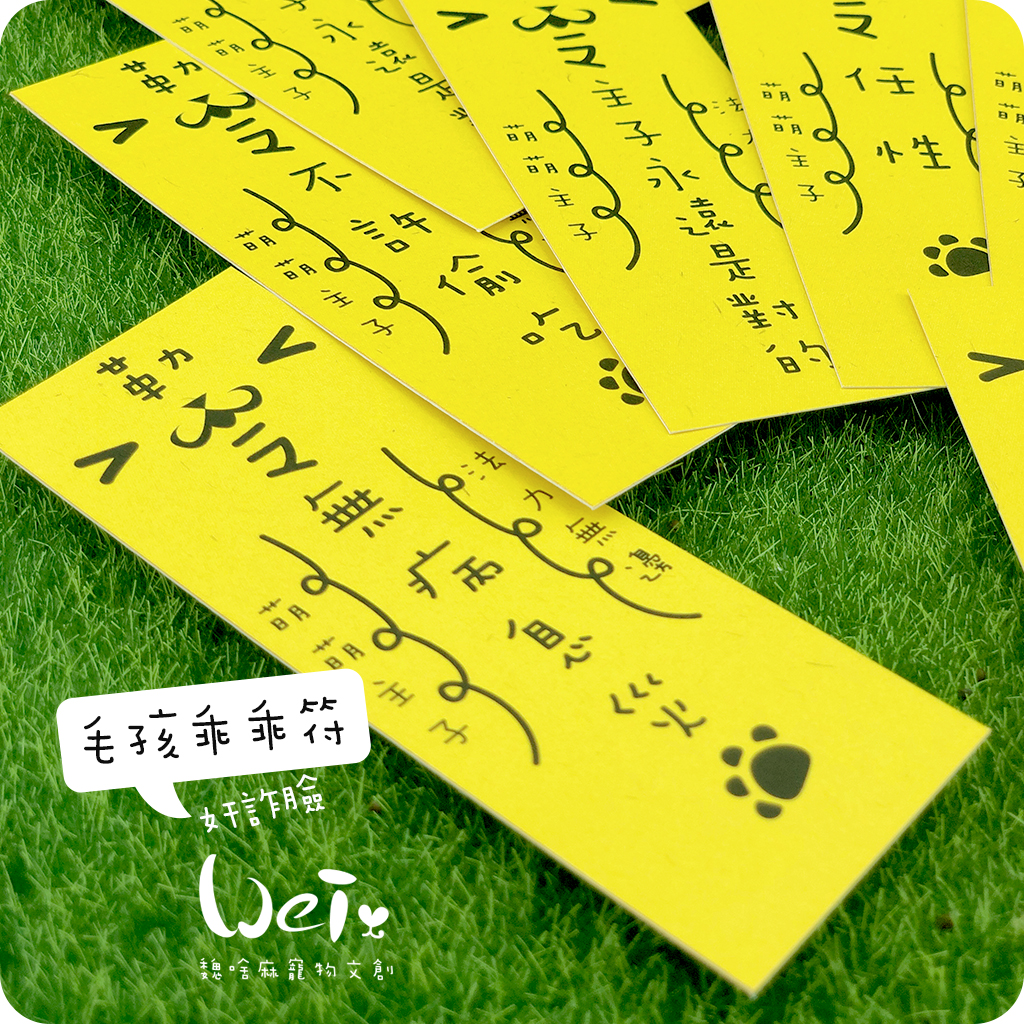 永遠是
萌萌主子
勒令不許偷吃
萌萌主子
令主子永遠是對的
萌萌主子
法力
令任性
萌萌主子
萌萌主子
法力無邊
勒令無病息災
萌萌主子
毛孩乖乖符
奸詐臉
魏啥麻寵物文創